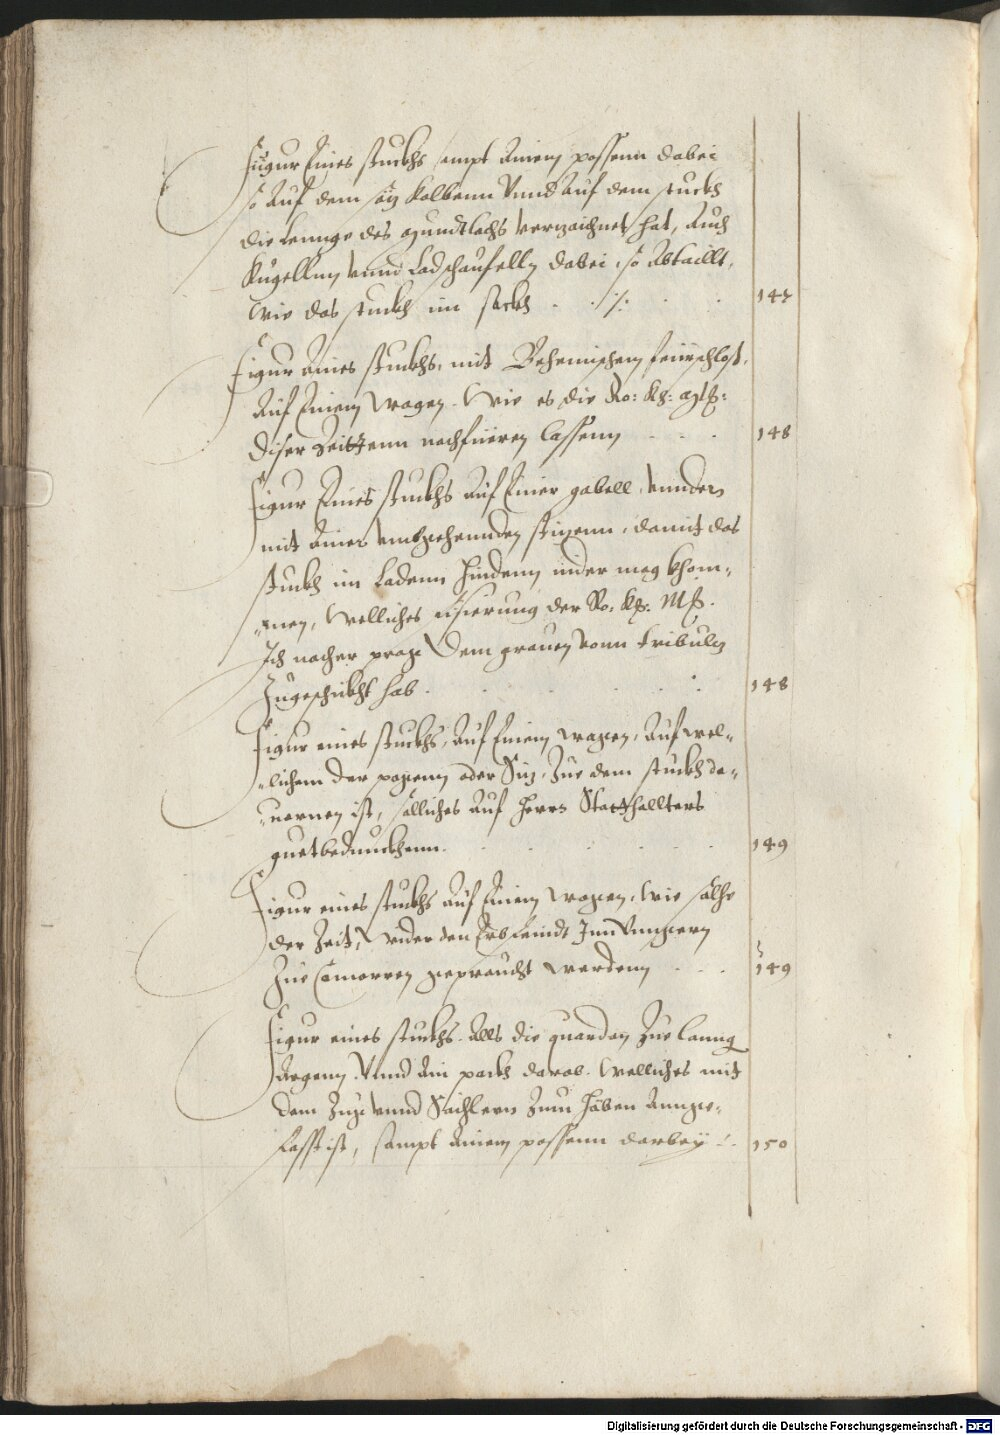 Figur Eines stuckhs sampt Ainem possenn dabei
so Auf dem Kolbenn Vnnd Auf dem stuckh
die Lennge des verzaichnet hat, Auch
Kugellnn vnnd Ladschaufelln dabei, so Abtaillt,
Wie das stuckh im steckh . . ./. . . 147
Figur Aines stuckhs, mit Behemischem feürschlos,
Auf Einem Wagen. Wie es die Ro: Kh: Mt:
diser Zeittenn nachfüeren lassenn . . . 148
Figur Eines stuckhs Auf Einer gabell, vnnden
mit Ainer vmbgehennden stizenn, damit das
stuckh im Ladenn hindenn nider mag khom=
=men, Welliches visierung der Ro: Kh: Mt.
Ich nacher prag dem grauen vonn
Zugeschickht hab . . . . . 148
Figur eines stuckhs, Auf Einem wagen, Auf wel=
=lichem der pogenn oder Siz, Zue dem stuckh
ist, sölliches Auf Herrn Statthallters
guetbedunckhenn . . . . 149
Figur eines stuckhs Auf Einem Wagen, Wie sölhe
der Zeit, Wider den Erbfeindt Inn Vnngern
Zue Comorren gepraucht werdenn . . . 149
Figur eines stuckhs. Alls die quardan Zue lanng
Vnnd Ain darob. Welliches mit
dem Zug vnnd Sailern Zum heben Annge=
=fasst ist, sampt Ainem possenn darbey . . 150
Digitalisierung gefördert durch die Deutsche Forschungsgemeinschaft - DFG